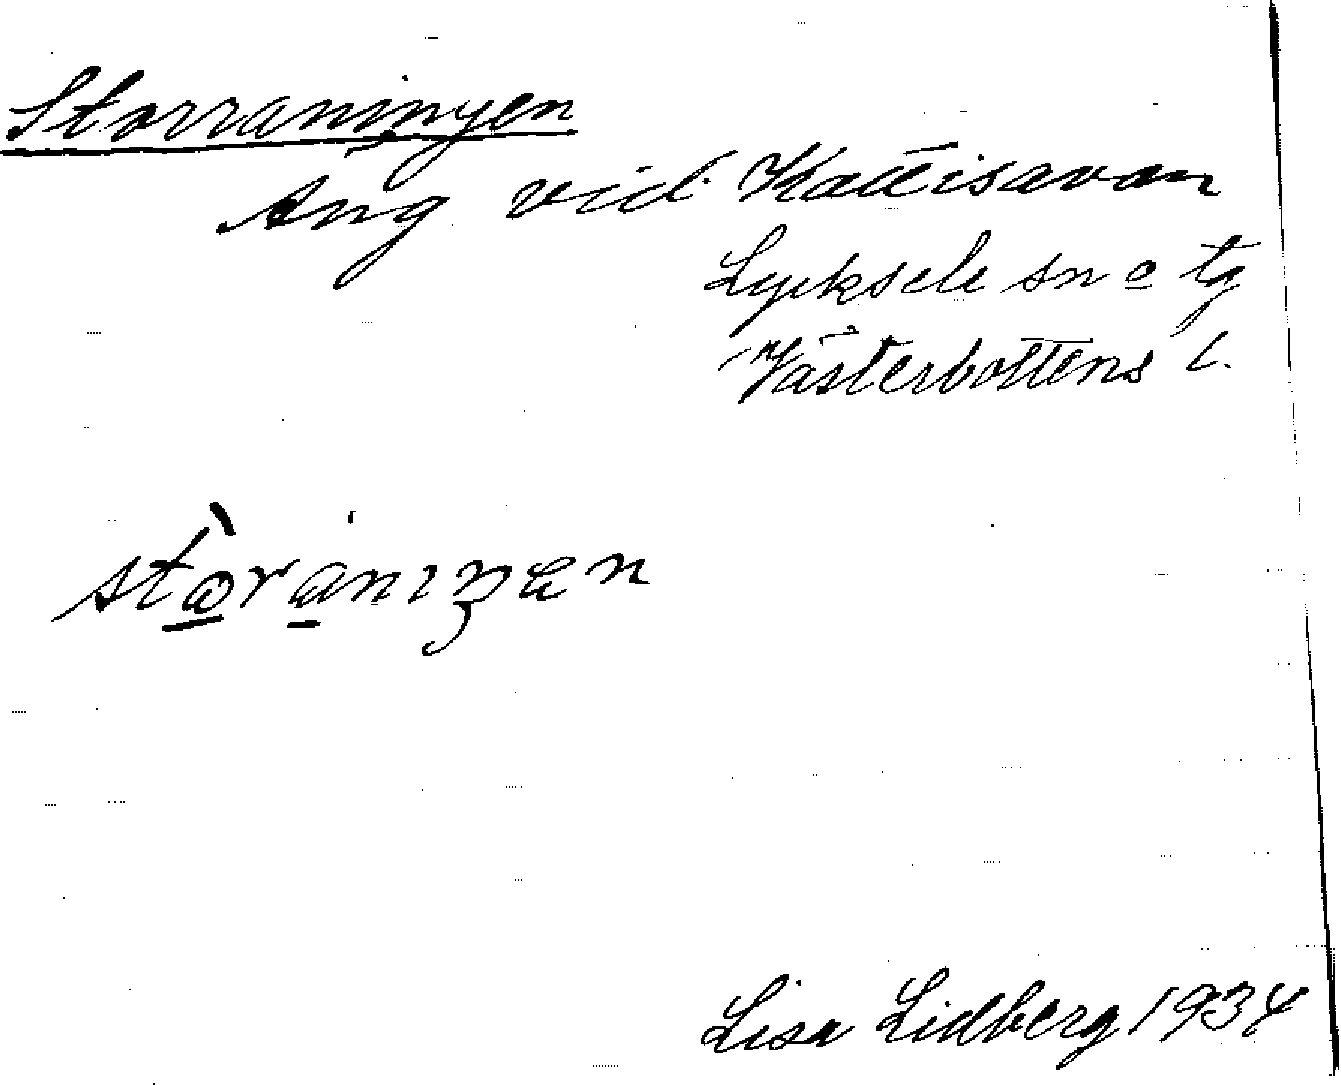 Storraningen
Äng vid Kattisavan
Lycksele sn o tg
Västerbottens l.
Lisa Lidberg 1934